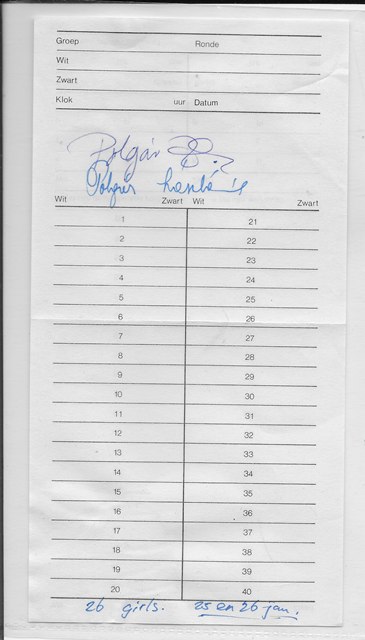 Groep Ronde
Wit
Zwart
Klok uur Datum
Polgár
Wit Zwart Wit Zwart
1 21
2 22
3 23
4 24
5 25
6 26
7 27
8 28
9 29
10 30
11 31
12 32
13 33
14 34
15 35
16 36
17 37
18 38
19 39
20 40
26 girls. 25 en 26 jan.